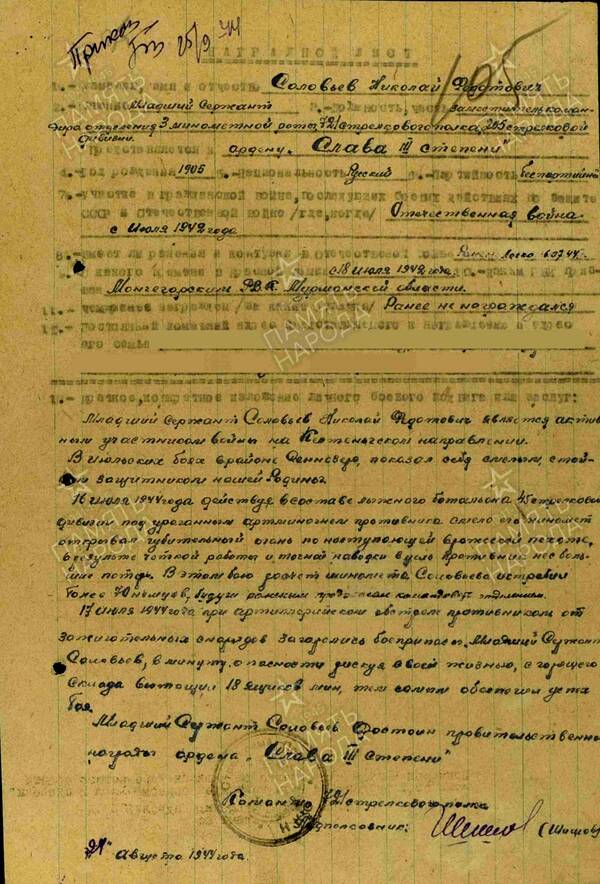 Приказ
25/9 44
105
НАГРАДНОЙ ЛИСТ
Соловьев Николай Федотович
Младший Сержант должность, часть Заместитель коман-
дира отделения 3 минометной роты 721 стрелкового полка, 205 стрелковой
дивизии.
Представляется к ордену „Слава III степени"
4.- Год рождения 1905 5.- Национальность Русский 6.- Партийность беспартийный
7.- участие в гражданской войне, последующих боевых действиях по защите
СССР и отечественной войне /где, когда/ Отечественная война
с Июля 1942 года
8.- имеет ли ранения и контузии в отечественной войне Ранен легко
с 18 июля 1942 года
Мончегорским Р.В.К. Мурманской области.
11.- чем ранее награжден /за какие отличия/ Ранее не награждался
12.- постоянный домашний адрес представляемого к награждению и адрес
его семьи
1.- краткое, конкретное изложение личного боевого подвига или заслуг:
Младший Сержант Соловьев Николай Федотович является актив
ным участником войны на Кестеньгском направлении.
В июльских боях в районе показал себя смелым, стой-
ким защитником нашей Родины.
16 июля 1944 года действуя в составе лыжного батальона 45 стрелковой
дивизии под ураганным артминогнем противника смело его миномет
открывал губительный огонь по наступающей вражеской пехоте,
в результате четкой работы и точной наводки в цель противник нес боль-
шие потери. В этом бою расчет миномета Соловьева истребил
более 70 немцев, будучи раненым продолжал командовать отделением.
17 июля 1944 года при артиллерийском обстреле противником от
зажигательных снарядов загорелись боеприпасы. Младший Сержант
Соловьев, в минуту опасности рискуя своей жизнью, с горящего
склада вытащил 18 ящиков мин, тем самым обеспечил успех
боя.
Младший Сержант Соловьев достоин правительственной
награды ордена „Слава III степени"
Командир 721 стрелкового полка
Подполковник: (Шишов)
"21" Августа 1944 года.
ПАМЯТЬ НАРОДА